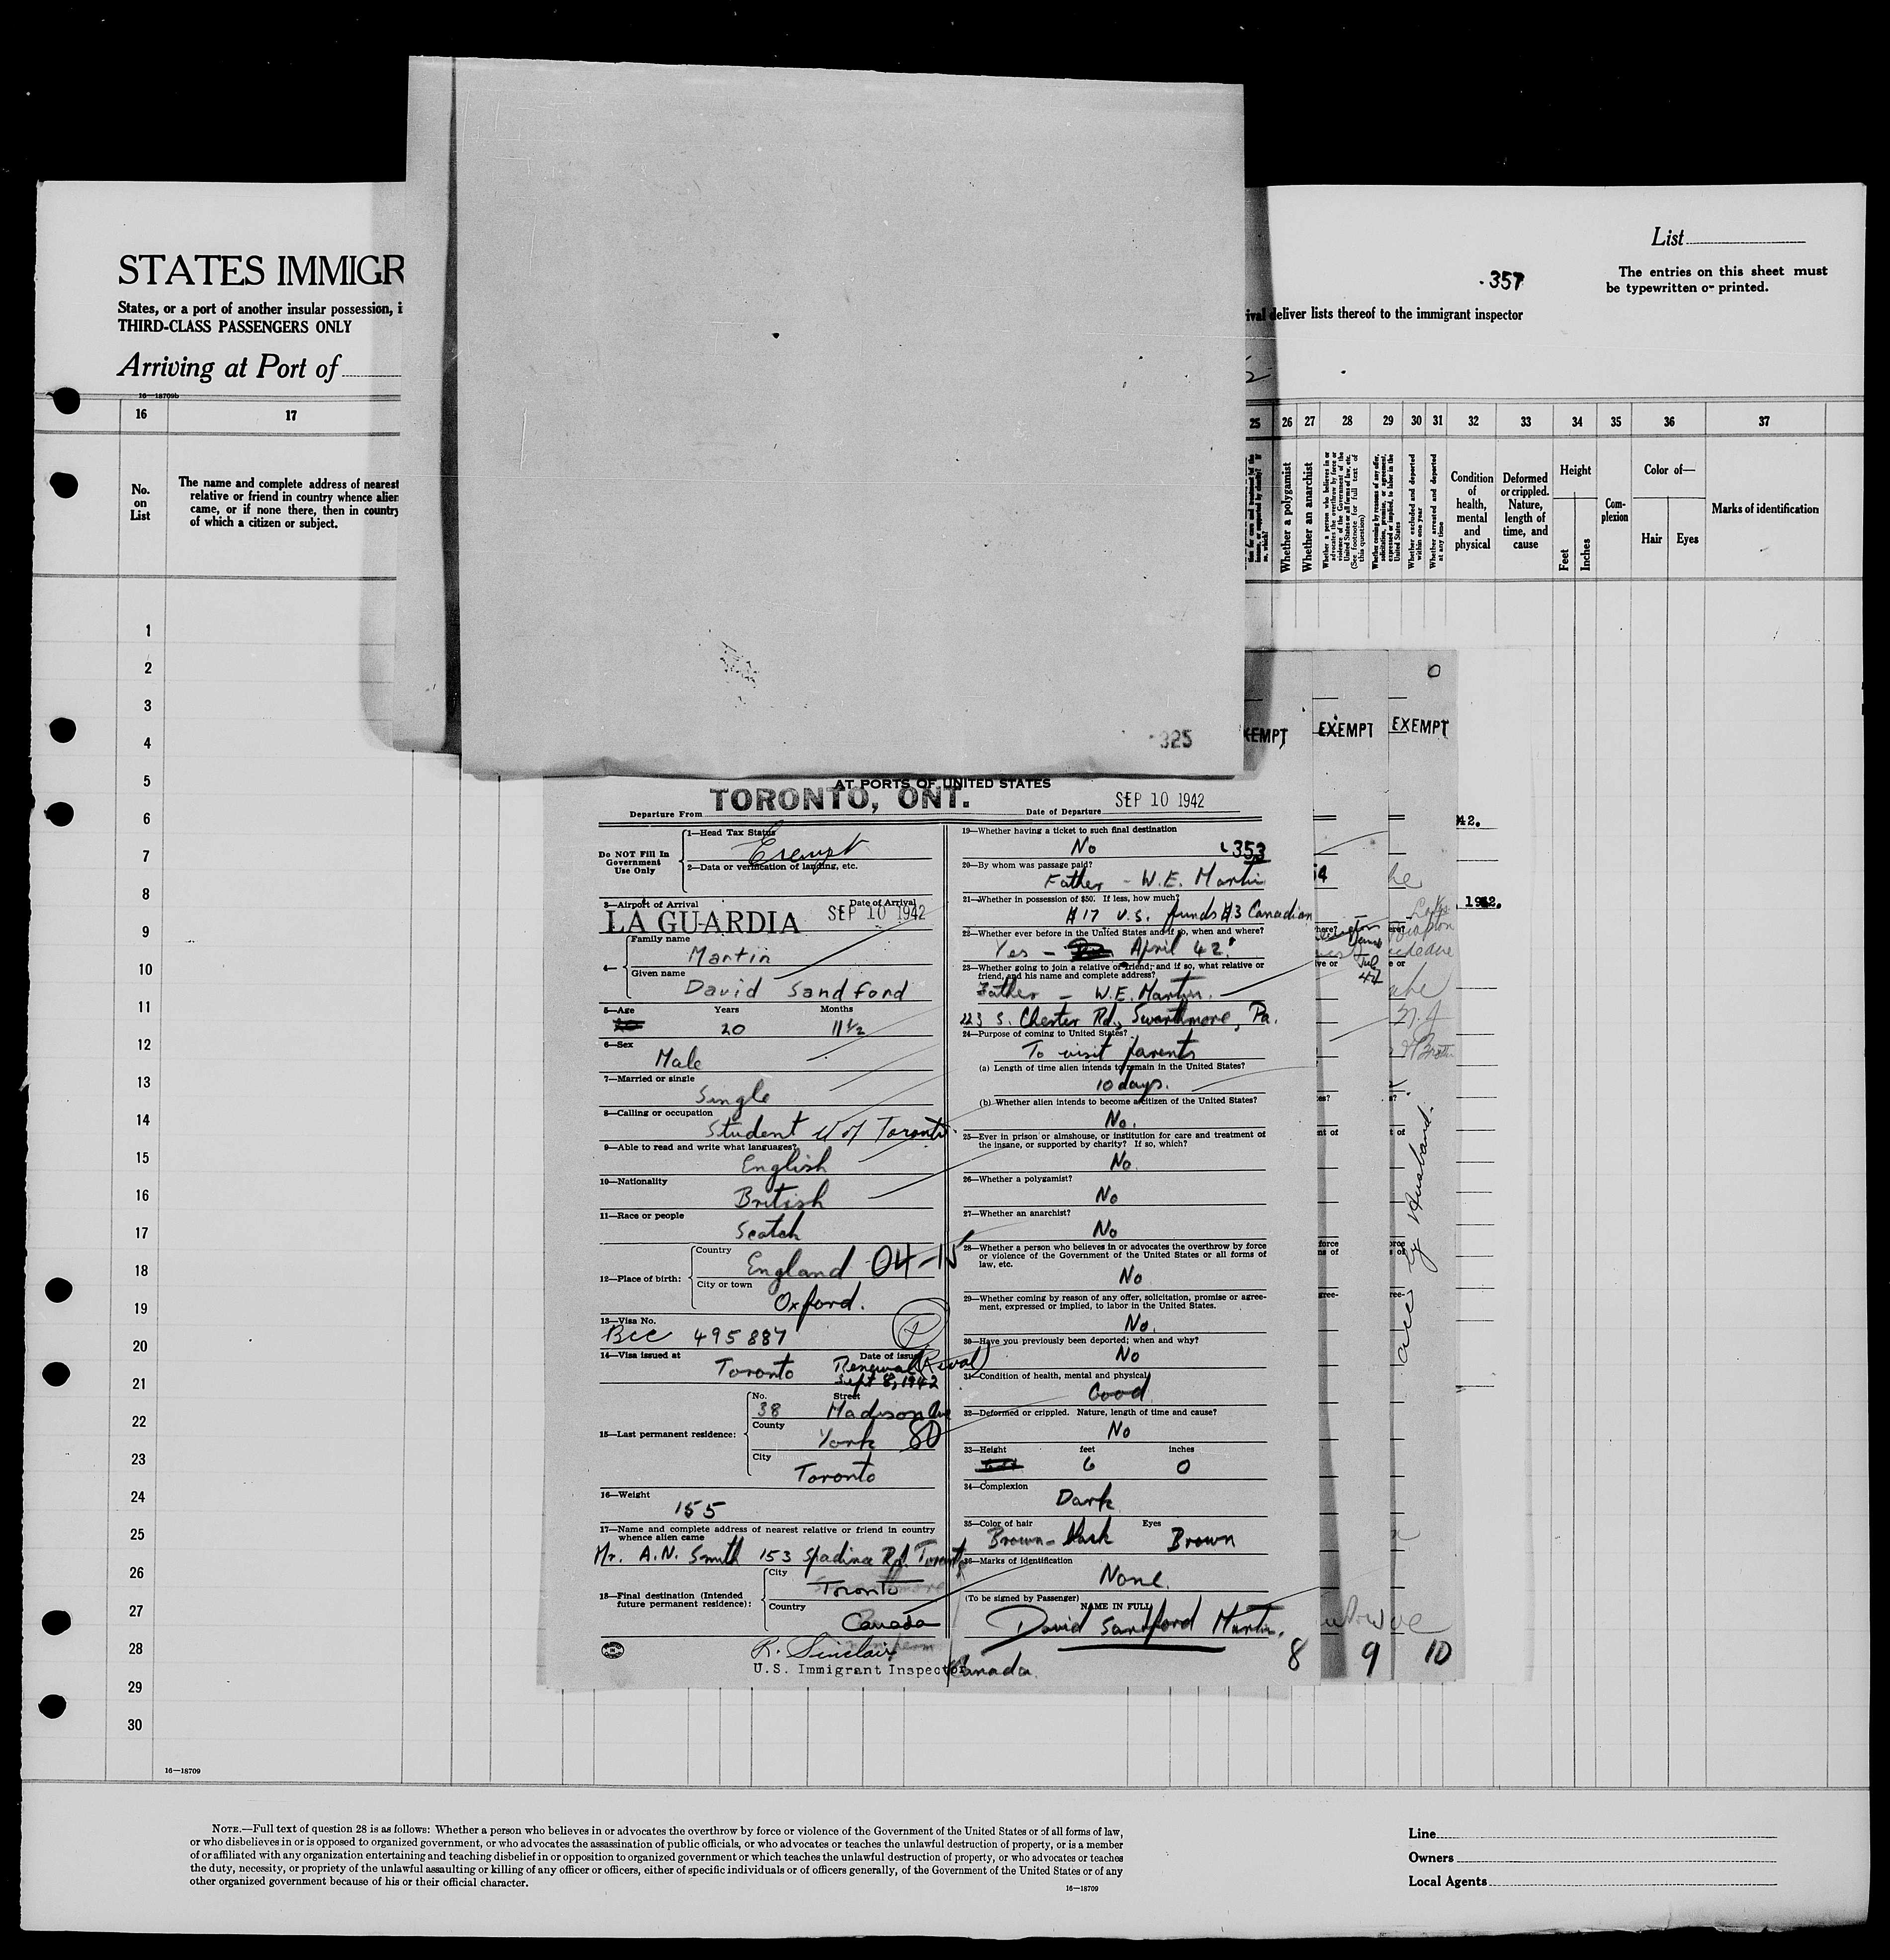 List
STATES IMMIGR
357
The entries on this sheet must
be typewritten or printed.
States, or a port of another insular possession, i
THIRD-CLASS PASSENGERS ONLY
ival deliver lists thereof to the immigrant inspector
Arriving at Port of
16—18709b
16 17 25 26 27 28 29 30 31 32 33 34 35 36 37
No.
on
List
The name and complete address of nearest
relative or friend in country whence alien
came, or if none there, then in country
of which a citizen or subject.
Whether a polygamist
Whether an anarchist
Whether a person who believes in or
advocates the overthrow by force or
violence of the Government of the
United States or all forms of law, etc.
(See footnote for full text of
this question)
Whether coming by reasons of any offer,
solicitation, promise, or agreement,
expressed or implied, to labor in the
United States
Whether excluded and deported
within one year
Whether arrested and deported
at any time
Condition
of
health,
mental
and
physical
Deformed
or crippled.
Nature,
length of
time, and
cause
Height
Feet
Inches
Com-
plexion
Color of—
Hair
Eyes
Marks of identification
1
2
3
4
5
6
7
8
9
10
11
12
13
14
15
16
17
18
19
20
21
22
23
24
25
26
27
28
29
30
325
EXEMPT EXEMPT EXEMPT
AT PORTS OF UNITED STATES
Departure From TORONTO, ONT.
Date of Departure SEP 10 1942
Do NOT Fill In
Government
Use Only
1—Head Tax Status
Exempt
2—Data or verification of landing, etc.
3—Airport of Arrival
LA GUARDIA
Date of Arrival
SEP 10 1942
4—
Family name
Martin
Given name
David Sandford
5—Age Years Months
20 11 1/2
6—Sex
Male
7—Married or single
Single
8—Calling or occupation
Student U of Toronto
9—Able to read and write what languages?
English
10—Nationality
British
11—Race or people
Scotch
12—Place of birth:
Country
England 04-15
City or town
Oxford.
13—Visa No.
BCC 495887
14—Visa issued at
Toronto
Date of issue
Renewal
Sept 8, 1942
15—Last permanent residence:
No. Street
38 Madison Ave
County
York 80
City
Toronto
16—Weight
155
17—Name and complete address of nearest relative or friend in country
whence alien came
Mr. A.N. Smith 153 Spadina Rd. Toronto
18—Final destination (Intended
future permanent residence):
City
Toronto
Country
Canada
R. Sinclair
U.S. Immigrant Inspector
19—Whether having a ticket to such final destination
No 353
20—By whom was passage paid?
Father - W.E. Martin
21—Whether in possession of $50. If less, how much?
$17 U.S. funds $3 Canadian
22—Whether ever before in the United States and if so, when and where?
Yes - April 42
23—Whether going to join a relative or friend; and if so, what relative or
friend, and his name and complete address?
Father - W.E. Martin.
223 S. Chester Rd., Swarthmore, Pa.
24—Purpose of coming to United States?
To visit parents
(a) Length of time alien intends to remain in the United States?
10 days.
(b) Whether alien intends to become a citizen of the United States?
No.
25—Ever in prison or almshouse, or institution for care and treatment of
the insane, or supported by charity? If so, which?
No
26—Whether a polygamist?
No
27—Whether an anarchist?
No
28—Whether a person who believes in or advocates the overthrow by force
or violence of the Government of the United States or all forms of
law, etc.
No
29—Whether coming by reason of any offer, solicitation, promise or agree-
ment, expressed or implied, to labor in the United States.
No.
30—Have you previously been deported; when and why?
No
31—Condition of health, mental and physical
Good
32—Deformed or crippled. Nature, length of time and cause?
No
33—Height feet inches
6 0
34—Complexion
Dark
35—Color of hair Eyes
Brown - Dark Brown
36—Marks of identification
None.
(To be signed by Passenger)
NAME IN FULL
David Sandford Martin.
Canada
8 9 10
16—18709
NOTE.—Full text of question 28 is as follows: Whether a person who believes in or advocates the overthrow by force or violence of the Government of the United States or of all forms of law,
or who disbelieves in or is opposed to organized government, or who advocates the assassination of public officials, or who advocates or teaches the unlawful destruction of property, or is a member
of or affiliated with any organization entertaining and teaching disbelief in or opposition to organized government or which teaches the unlawful destruction of property, or who advocates or teaches
the duty, necessity, or propriety of the unlawful assaulting or killing of any officer or officers, either of specific individuals or of officers generally, of the Government of the United States or of any
other organized government because of his or their official character.
16—18709
Line
Owners
Local Agents